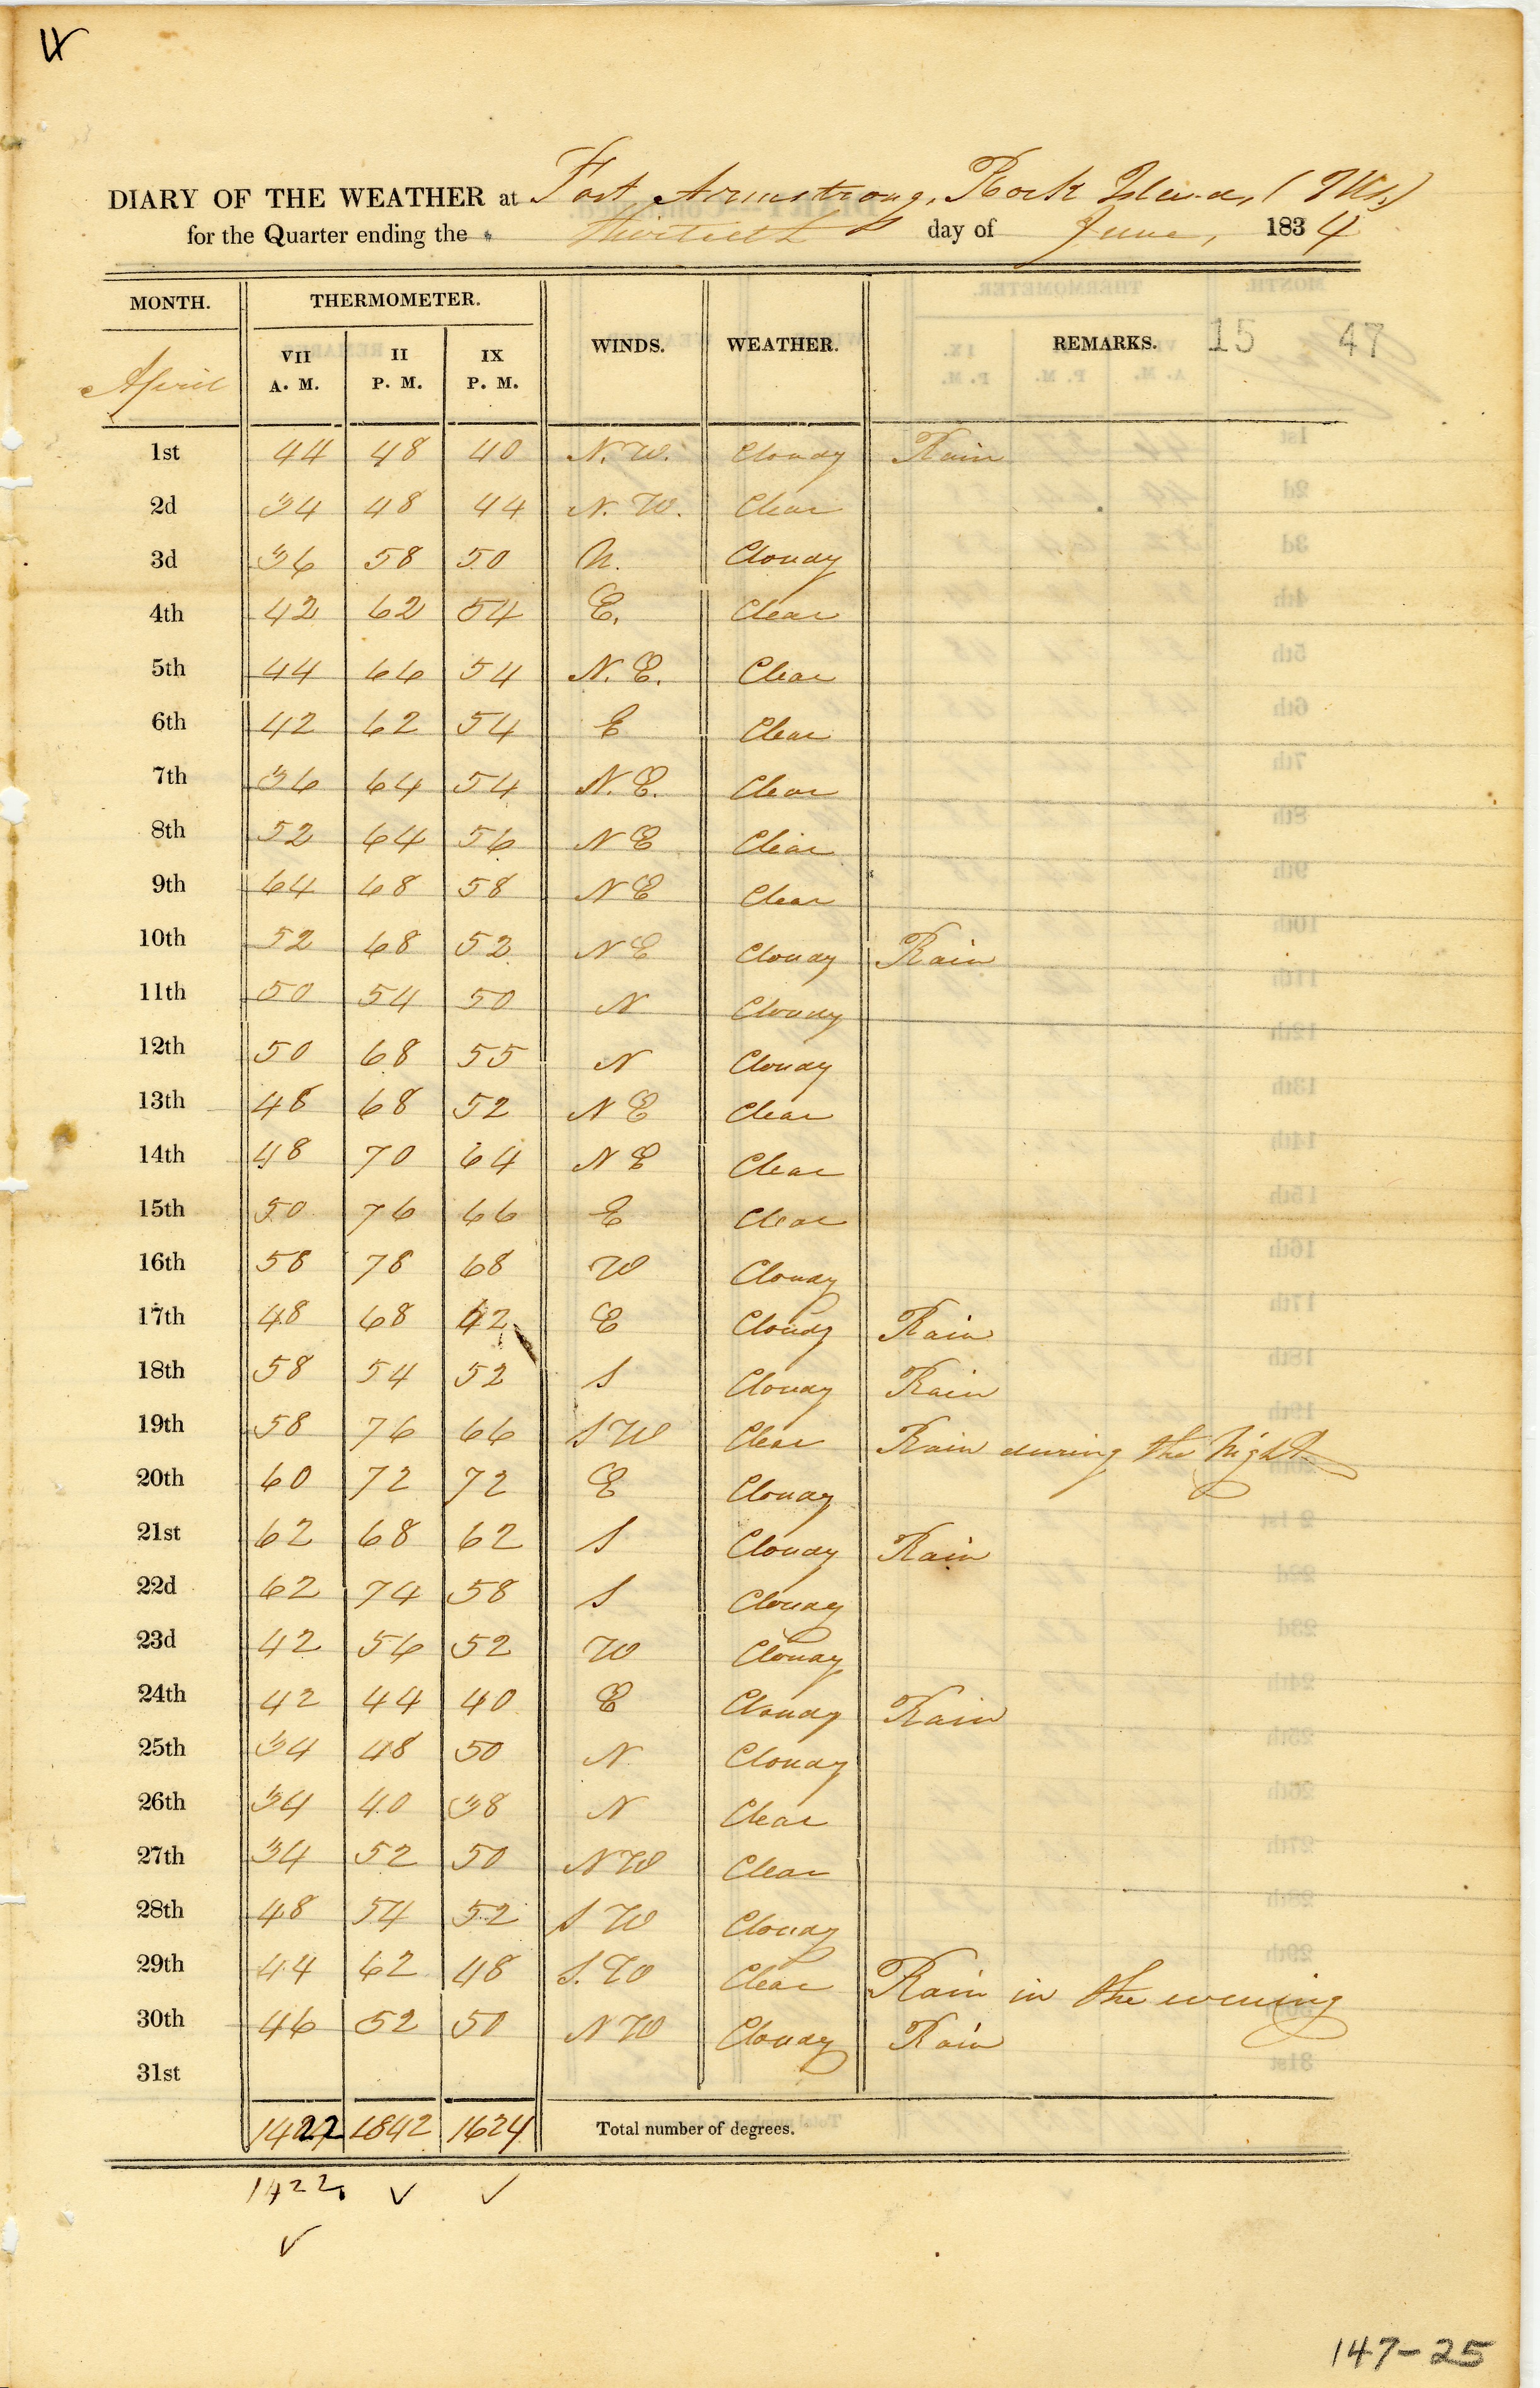 4
DIARY OF THE WEATHER at Fort Armstrong, Rock Island, (Ills.)
for the Quarter ending the Thirtieth day of June, 1834
MONTH. THERMOMETER. WINDS. WEATHER. REMARKS. 15 47
April VII A. M. II P. M. IX P. M.
1st 44 48 40 N.W. Cloudy Rain
2d 34 48 44 N.W. Clear
3d 36 58 50 N. Cloudy
4th 42 62 54 E. Clear
5th 44 66 54 N.E. Clear
6th 42 62 54 E Clear
7th 36 64 54 N.E. Clear
8th 52 64 56 N E Clear
9th 64 68 58 N E Clear
10th 52 68 52 N E Cloudy Rain
11th 50 54 50 N Cloudy
12th 50 68 55 N Cloudy
13th 48 68 52 N E Clear
14th 48 70 64 N E Clear
15th 50 76 66 E Clear
16th 58 78 68 W Cloudy
17th 48 68 62 E Cloudy Rain
18th 58 54 52 S Cloudy Rain
19th 58 76 66 S W Clear Rain during the night
20th 60 72 72 E Cloudy
21st 62 68 62 S Cloudy Rain
22d 62 74 58 S Cloudy
23d 42 56 52 W Cloudy
24th 42 44 40 E Cloudy Rain
25th 34 48 50 N Cloudy
26th 34 40 38 N Clear
27th 34 52 50 N W Clear
28th 48 54 52 S W Cloudy
29th 44 62 48 S.W Clear Rain in the evening
30th 46 52 50 N W Cloudy Rain
31st
1422 1842 1624 Total number of degrees.
1422 ✓ ✓
✓
147-25